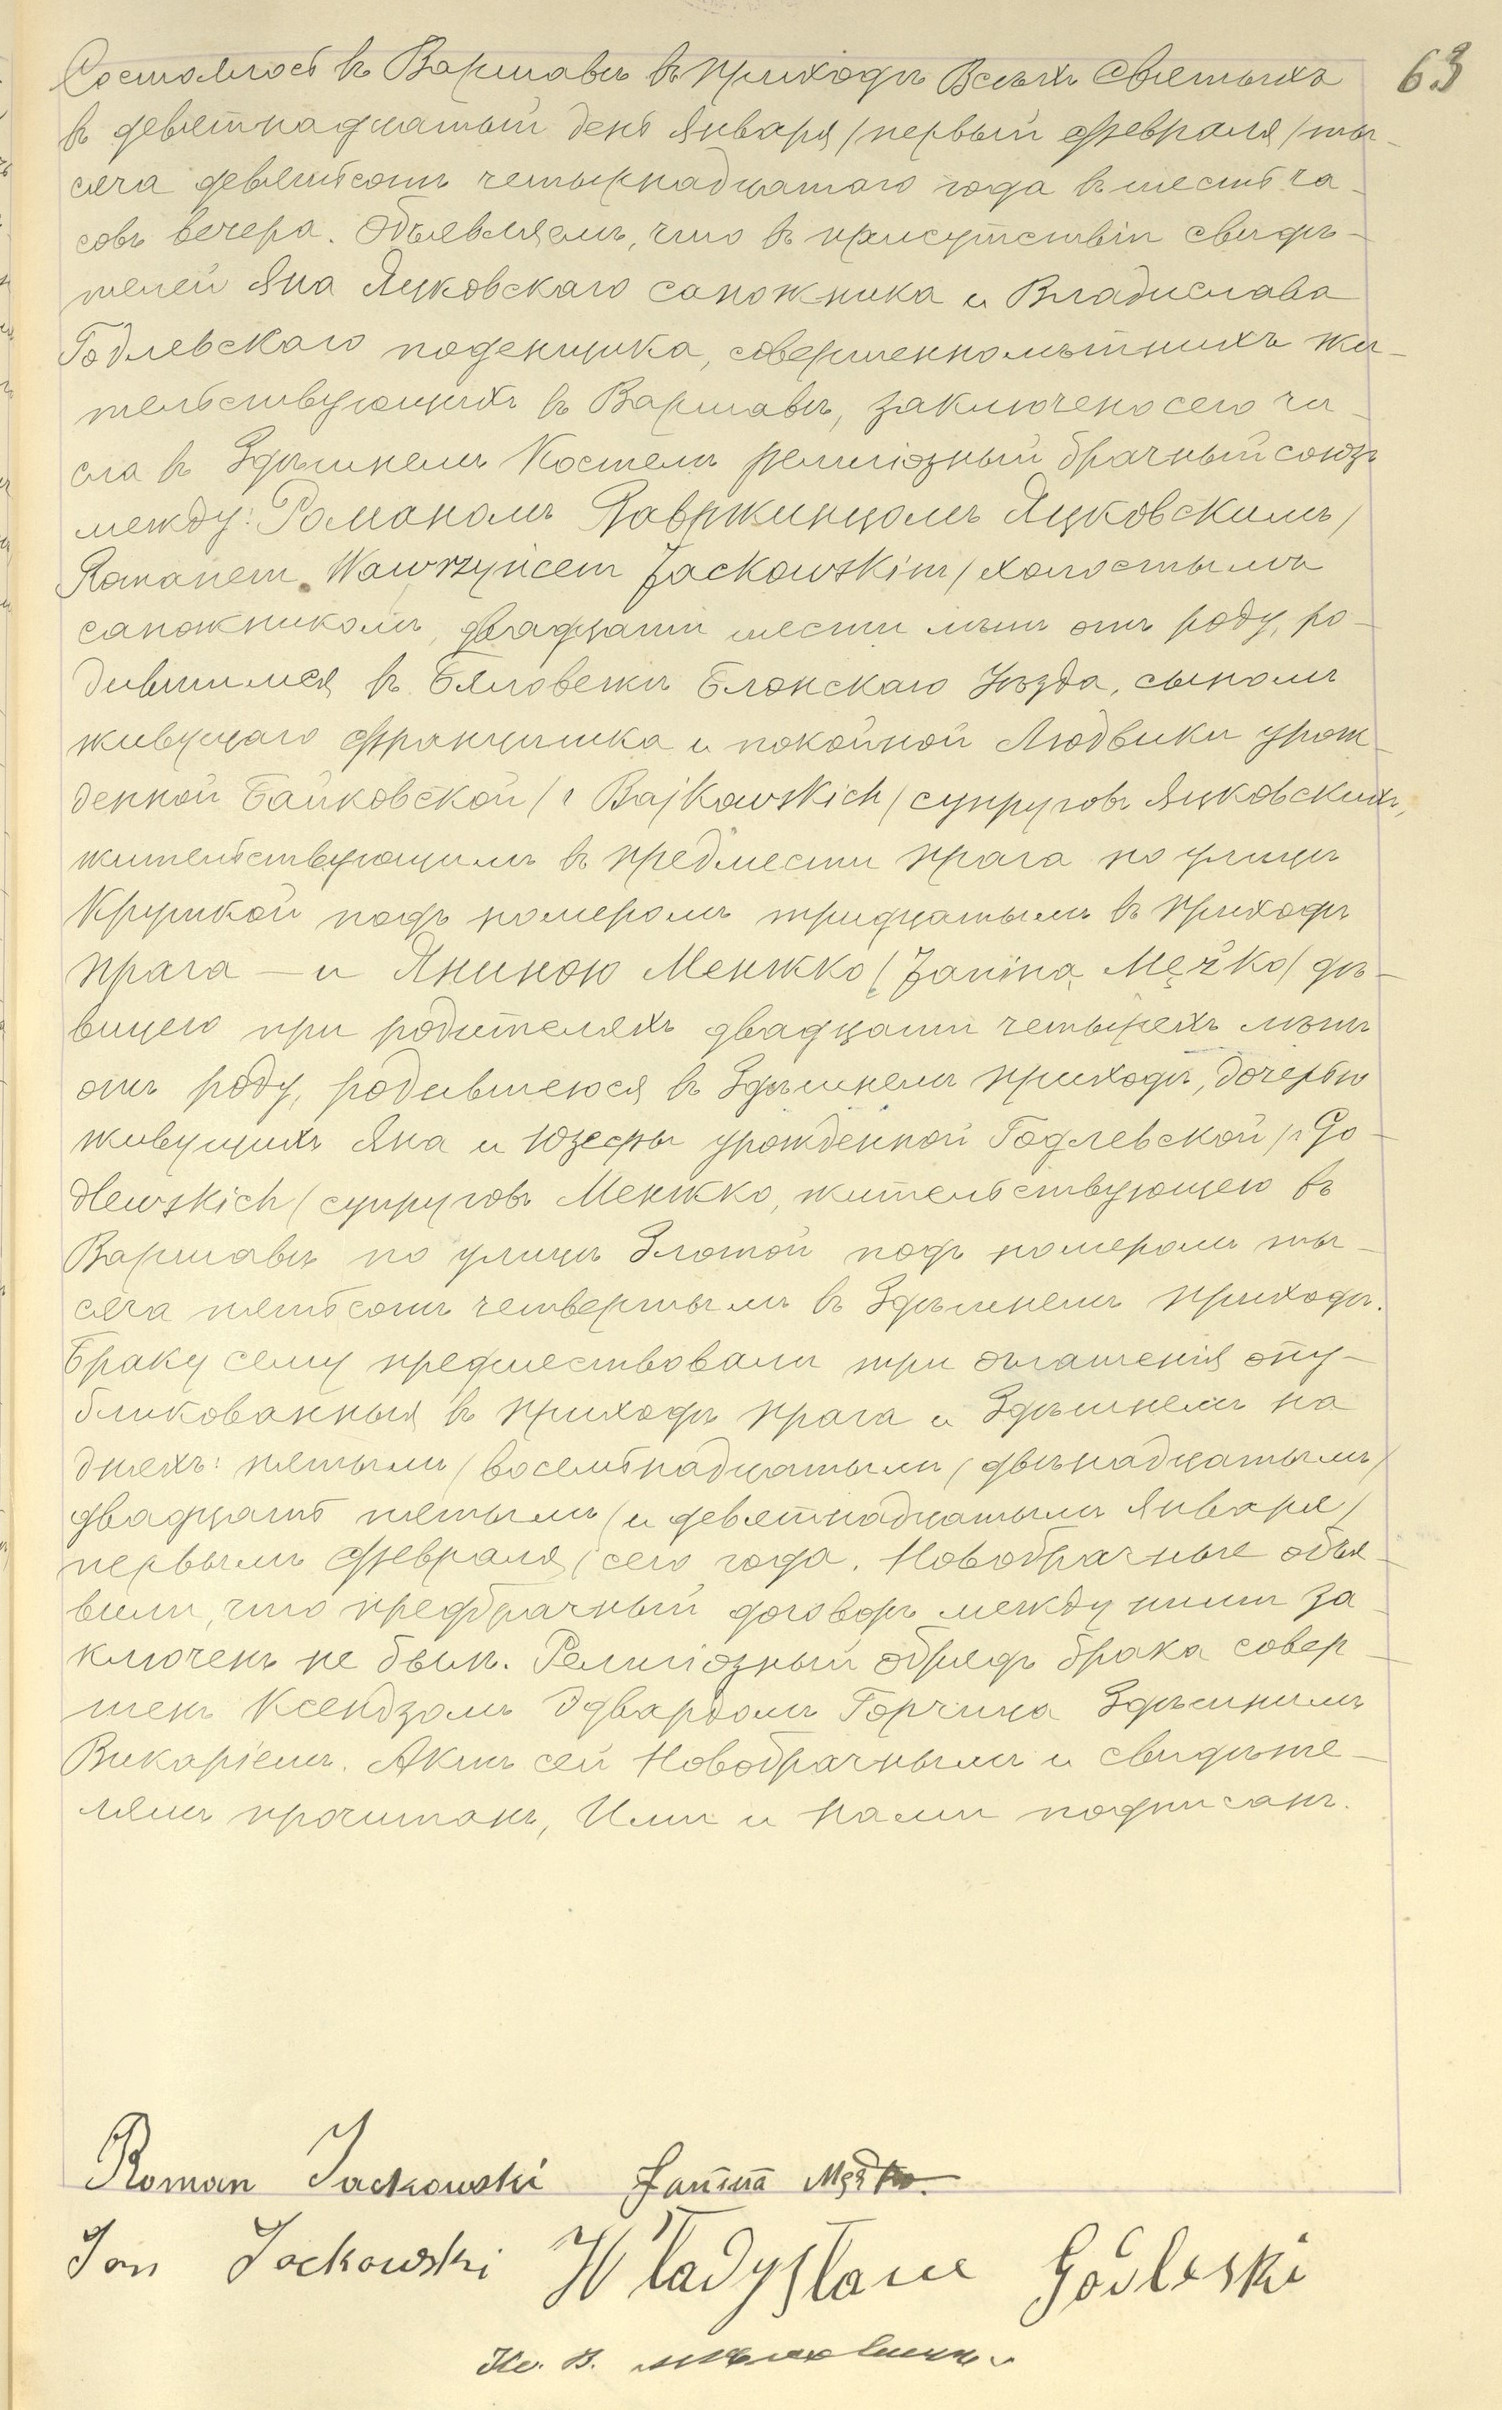 63
Состоялось въ Варшавѣ въ приходѣ Всѣхъ Святыхъ
въ девятнадцатый день Января /первый Февраля/ ты-
сяча девятьсотъ четырнадцатаго года въ шесть ча-
совъ вечера. Объявляемъ, что въ присутствіи свидѣ-
телей Яна Яцковскаго сапожника и Владислава
Годлевскаго поденщика, совершеннолѣтнихъ жи-
тельствующихъ въ Варшавѣ, заключено сего чи-
сла въ Здѣшнемъ Костелѣ религіозный брачный союзъ
между: Романомъ Вавржинцомъ Яцковскимъ/
Romanem Wawrzyńcem Jackowskim/ холостымъ
сапожникомъ, двадцати шести лѣтъ отъ роду, ро-
дившимся въ Бяловежи Блонскаго Уѣзда, сыномъ
живущаго Францишка и покойной Людвики урож-
денной Байковской /z Bajkowskich/ супруговъ Яцковскихъ,
жительствующимъ въ предмести Прага по улицѣ
Крупкой подъ номеромъ тридцатымъ въ приходѣ
Прага — и Яниною Менжко /Janina Mężko/ дѣ-
вицею при родителяхъ двадцати четырехъ лѣтъ
отъ роду, родившеюся въ Здѣшнемъ приходѣ, дочерью
живущихъ Яна и Юзефы урожденной Годлевской /z Go-
dlewskich/ супруговъ Менжко, жительствующею въ
Варшавѣ по улицѣ Злотой подъ номеромъ ты-
сяча пятьсотъ четвертымъ въ Здѣшнемъ приходѣ.
Браку сему предшествовали три оглашенія опу-
бликованныя въ приходѣ Прага и Здѣшнемъ на
дняхъ: пятымъ /восемнадцатымъ/, двѣнадцатымъ/
двадцать пятымъ/ и девятнадцатымъ Января/
первымъ Февраля/ сего года. Новобрачные объя-
вили, что предбрачный договоръ между ними за-
ключенъ не былъ. Религіозный обрядъ брака совер-
шенъ Ксендзомъ Эдвардомъ Горчица Здѣшнимъ
Викаріемъ. Актъ сей Новобрачнымъ и свидѣте-
лямъ прочитанъ, Ими и Нами подписанъ.
Roman Jackowski Janina Mężko
Jan Jackowski Władysław Godleski
Кс. В.